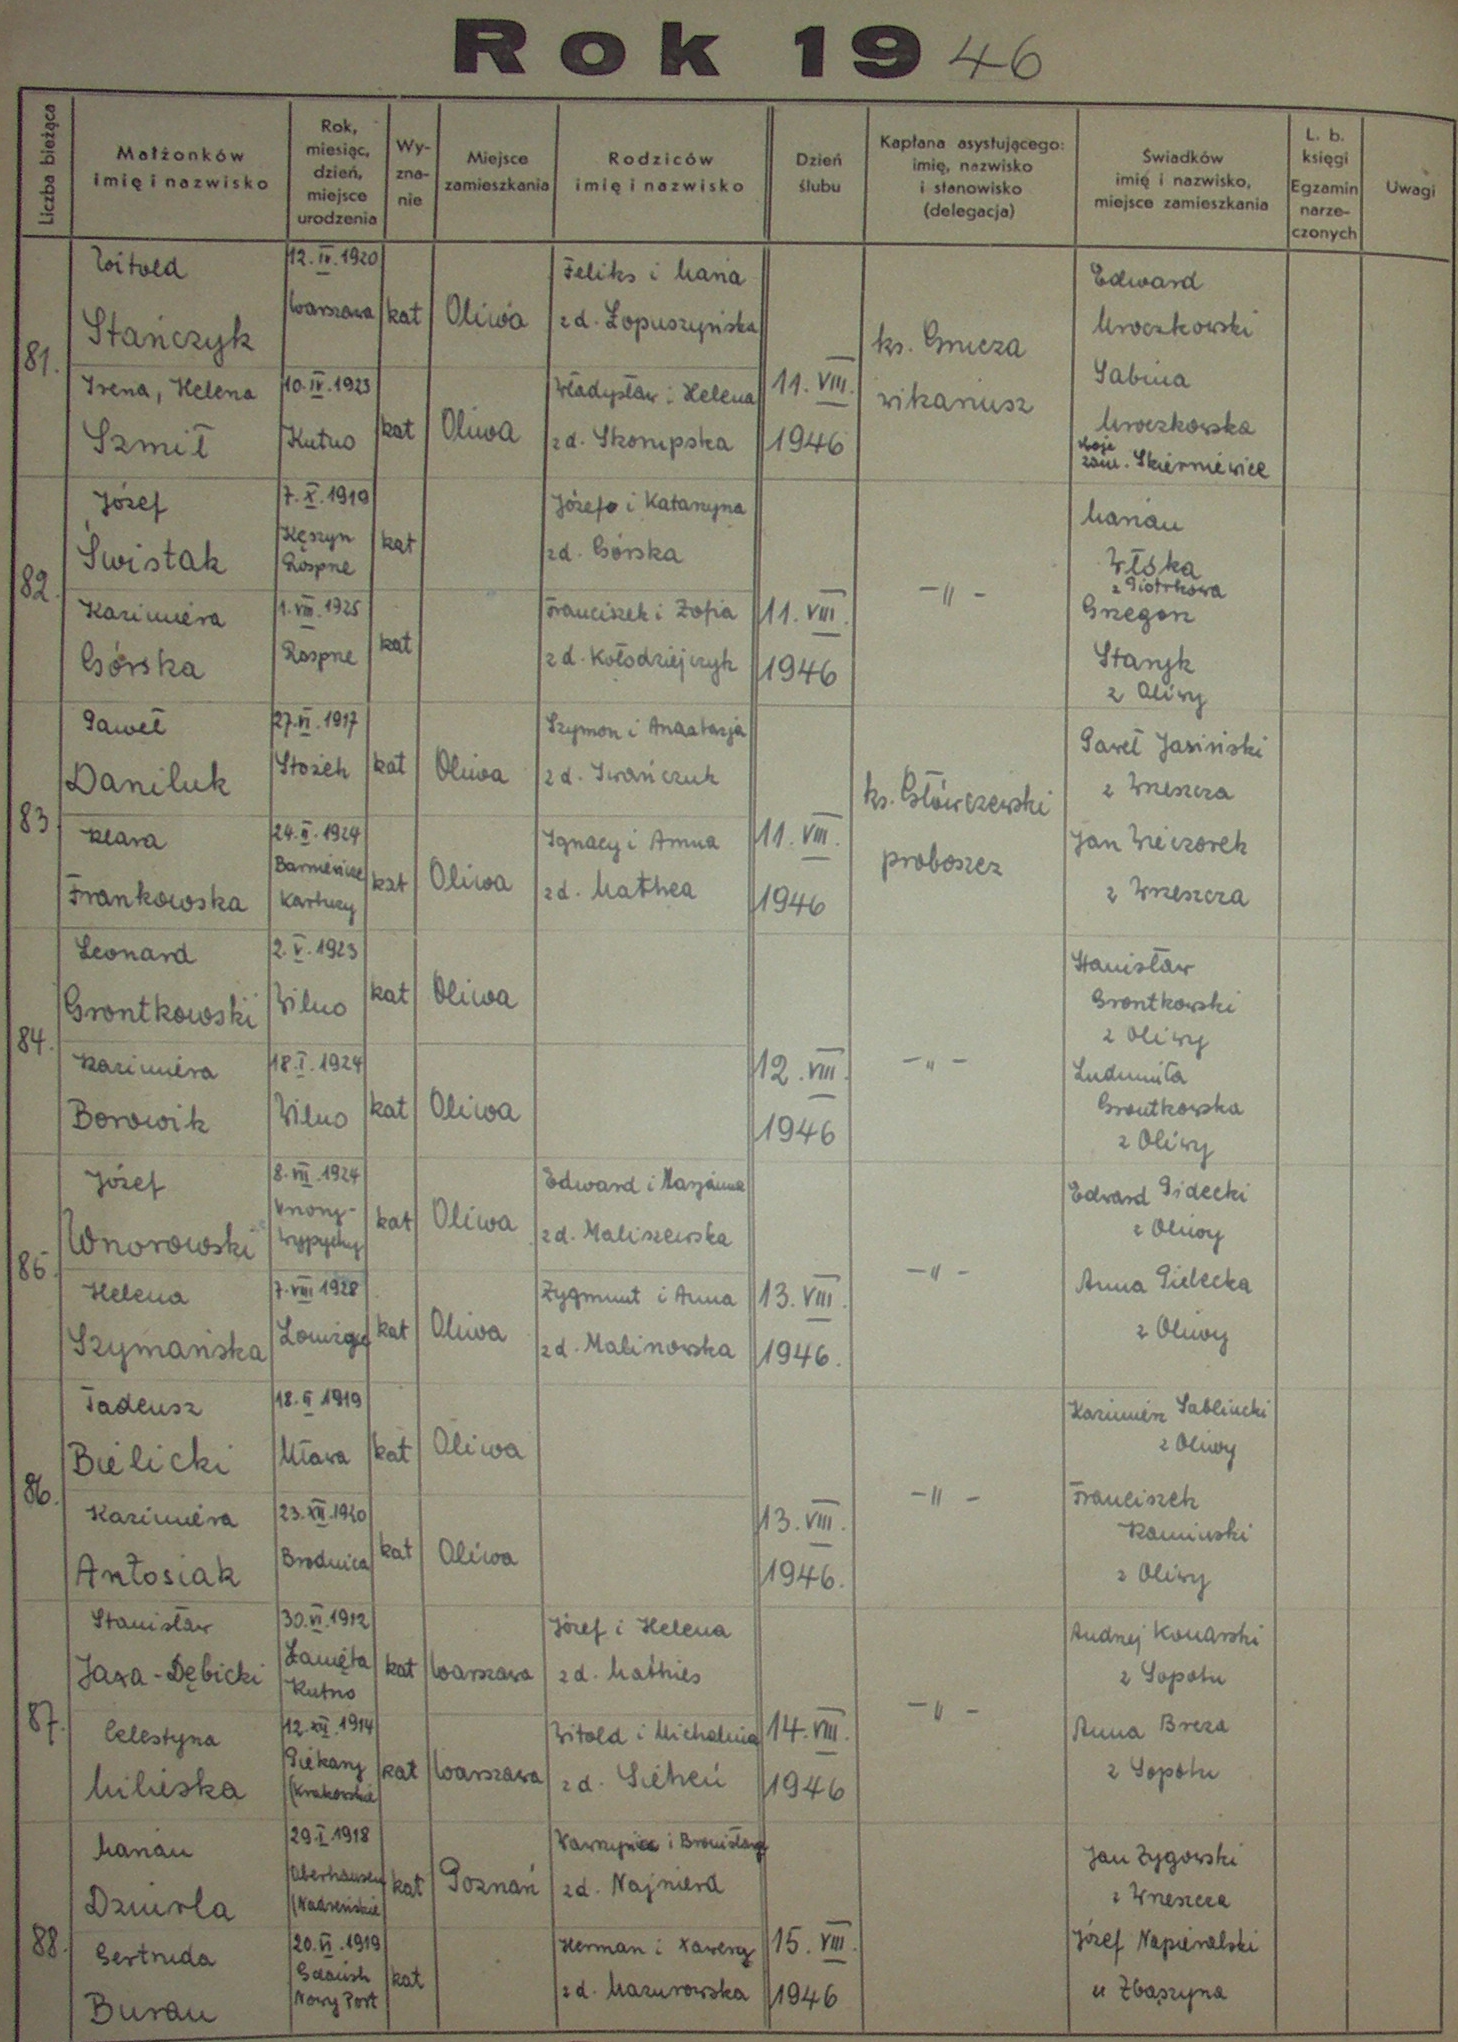 Rok 1946
Liczba bieżąca
Małżonków
imię i nazwisko
Rok,
miesiąc,
dzień,
miejsce
urodzenia
Wy-
zna-
nie
Miejsce
zamieszkania
Rodziców
imię i nazwisko
Dzień
ślubu
Kapłana asystującego:
imię, nazwisko
i stanowisko
(delegacja)
Świadków
imię i nazwisko,
miejsce zamieszkania
L. b.
księgi
Egzamin
narze-
czonych
Uwagi
81.
Witold
Stańczyk
12.IV.1920
Warszawa
kat
Oliwa
Feliks i Maria
z d. Łopuszyńska
Irena, Helena
Szmit
10.IV.1923
Kutno
kat
Oliwa
Władysław i Helena
z d. Skorupska
11.VIII.
1946
ks. Gnicza
wikariusz
Edward
Mroczkowski
Sabina
Mroczkowska
zam. Skierniewice
82.
Józef
Świstak
7.X.1919
Rospne
kat
Józef i Katarzyna
z d. Górska
Kazimiera
Górska
1.VIII.1925
Rospne
kat
Franciszek i Zofia
z d. Kołodziejczyk
11.VIII.
1946
-"-
Marian
Włóka
z Piotrkowa
Grzegorz
Staryk
z Oliwy
83
Paweł
Daniluk
27.VI.1917
Stożek
kat
Oliwa
Szymon i Anastazja
z d. Iwańczuk
Klara
Frankowska
24.II.1924
Kartuzy
kat
Oliwa
Ignacy i Anna
z d. Mathea
11.VIII.
1946
ks. Główczewski
proboszcz
Paweł Jasiński
z Wrzeszcza
Jan Wieczorek
z Wrzeszcza
84.
Leonard
Grontkowski
2.V.1923
Wilno
kat
Oliwa
Kazimiera
Borowik
18.I.1924
Wilno
kat
Oliwa
12.VIII.
1946
-"-
Stanisław
Grontkowski
z Oliwy
Ludmiła
Grontkowska
z Oliwy
85.
Józef
Wnorowski
8.VII.1924
Wnory-
Wypychy
kat
Oliwa
Edward i Marjanna
z d. Maliszewska
Helena
Szymańska
7.VIII 1928
kat
Oliwa
Zygmunt i Anna
z d. Malinowska
13.VIII.
1946.
-"-
Edward
z Oliwy
Anna
z Oliwy
86.
Tadeusz
Bielicki
18.II 1919
Mława
kat
Oliwa
Kazimiera
Antosiak
23.XII.1920
Brodnica
kat
Oliwa
13.VIII.
1946.
-"-
Kazimierz Sablincki
z Oliwy
Franciszek
Kaminski
z Oliwy
87.
Stanisław
Jaxa-Dębicki
30.VI.1912
Łanięta
Kutno
kat
Warszawa
Józef i Helena
z d. Mathies
Celestyna
Milieska
12.XII.1914
Piekary
(Krakowskie
kat
Warszawa
Witold i Michalina
z d. Sicheń
14.VIII.
1946
-"-
Andrzej Konarski
z Sopotu
Anna Breza
z Sopotu
88.
Marian
Dziurla
29.I.1918
Oberhausen
(Nadreńskie
kat
Poznań
Wawrzyniec i Bronisława
z d. Najnierd
Gertruda
Burau
20.VI.1919
Gdańsk
Nowy Port
kat
Herman i Xawera
z d. Mazurowska
15.VIII.
1946
Jan Zygowski
z Wrzeszcza
Józef Napieralski
u Zbąszyna